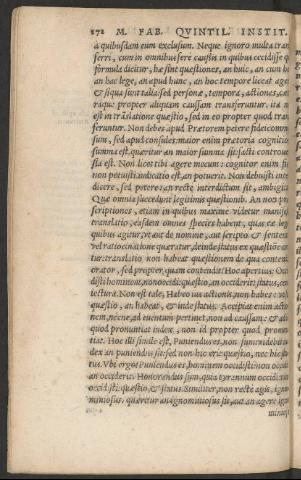 172 M. FAB. QVINTIL. INSTIT.
à quibusdam eum exclusum. Neque ignoro multa tran
ferri, cum in omnibus ferè causis in quibus cecidisse q
formula dicitur, hæ sint quæstiones, an huic, an cum h
an hac lege, an apud hunc, an hoc tempore liceat age
& siqua sunt talia sed personæ, tempora, actiones, cæ
raque propter aliquam caussam transferuntur. ita n
est in translatione quæstio, sed in eo propter quod tran
feruntur. Non debes apud Prætorem petere fideicomm
sum, sed apud consules, maior enim prætoria cognitio
summa est. quæritur an maior summa sit: facti controue
sia est. Non licet tibi agere mecum: cognitor enim fi
non potuisti. iudicatio est, an potuerit. Non debuisti inte
dicere, sed petere: an recte interdictum sit, ambigi
Quæ omnia succedunt legitimis quæstionib. An non præ
scriptiones, etiam in quibus maxime videtur manife
translatio, easdem omneis species habent, quas eæ leg
quibus agitur, vt aut de nomine, aut scripto & senten
vel ratiocinatione quæratur, deinde status ex quæstione
tur: translatio non habeat quæstionem de qua conten
orator, sed propter quam contendat? Hoc apertius: Occi
disti hominem, non occidi: quæstio, an occiderit: status, con
iectura. Non est tale, Habeo ius actionis, non habes:
quæstio, an habeat, & inde status. Accipiat enim actio
nem, nécne, ad euentum pertinet, non ad caussam: & ali
quod pronuntiat iudex, non id propter quod pronun
tiat. Hoc illi simile est, Puniendus es, non sum: videbit iu
dex an puniendus sit: sed non hic erit quæstio, nec hic sta
tus. Vbi ergo? Puniendus es, hominem occidisti: non occidi
an occiderit. Honorandus sum, quia tyrannum occidi: non
occidisti: quæstio, & status. Similiter, non rectè agis, igno
miniosus: quæritur an ignominiosus sit, aut an agere igno